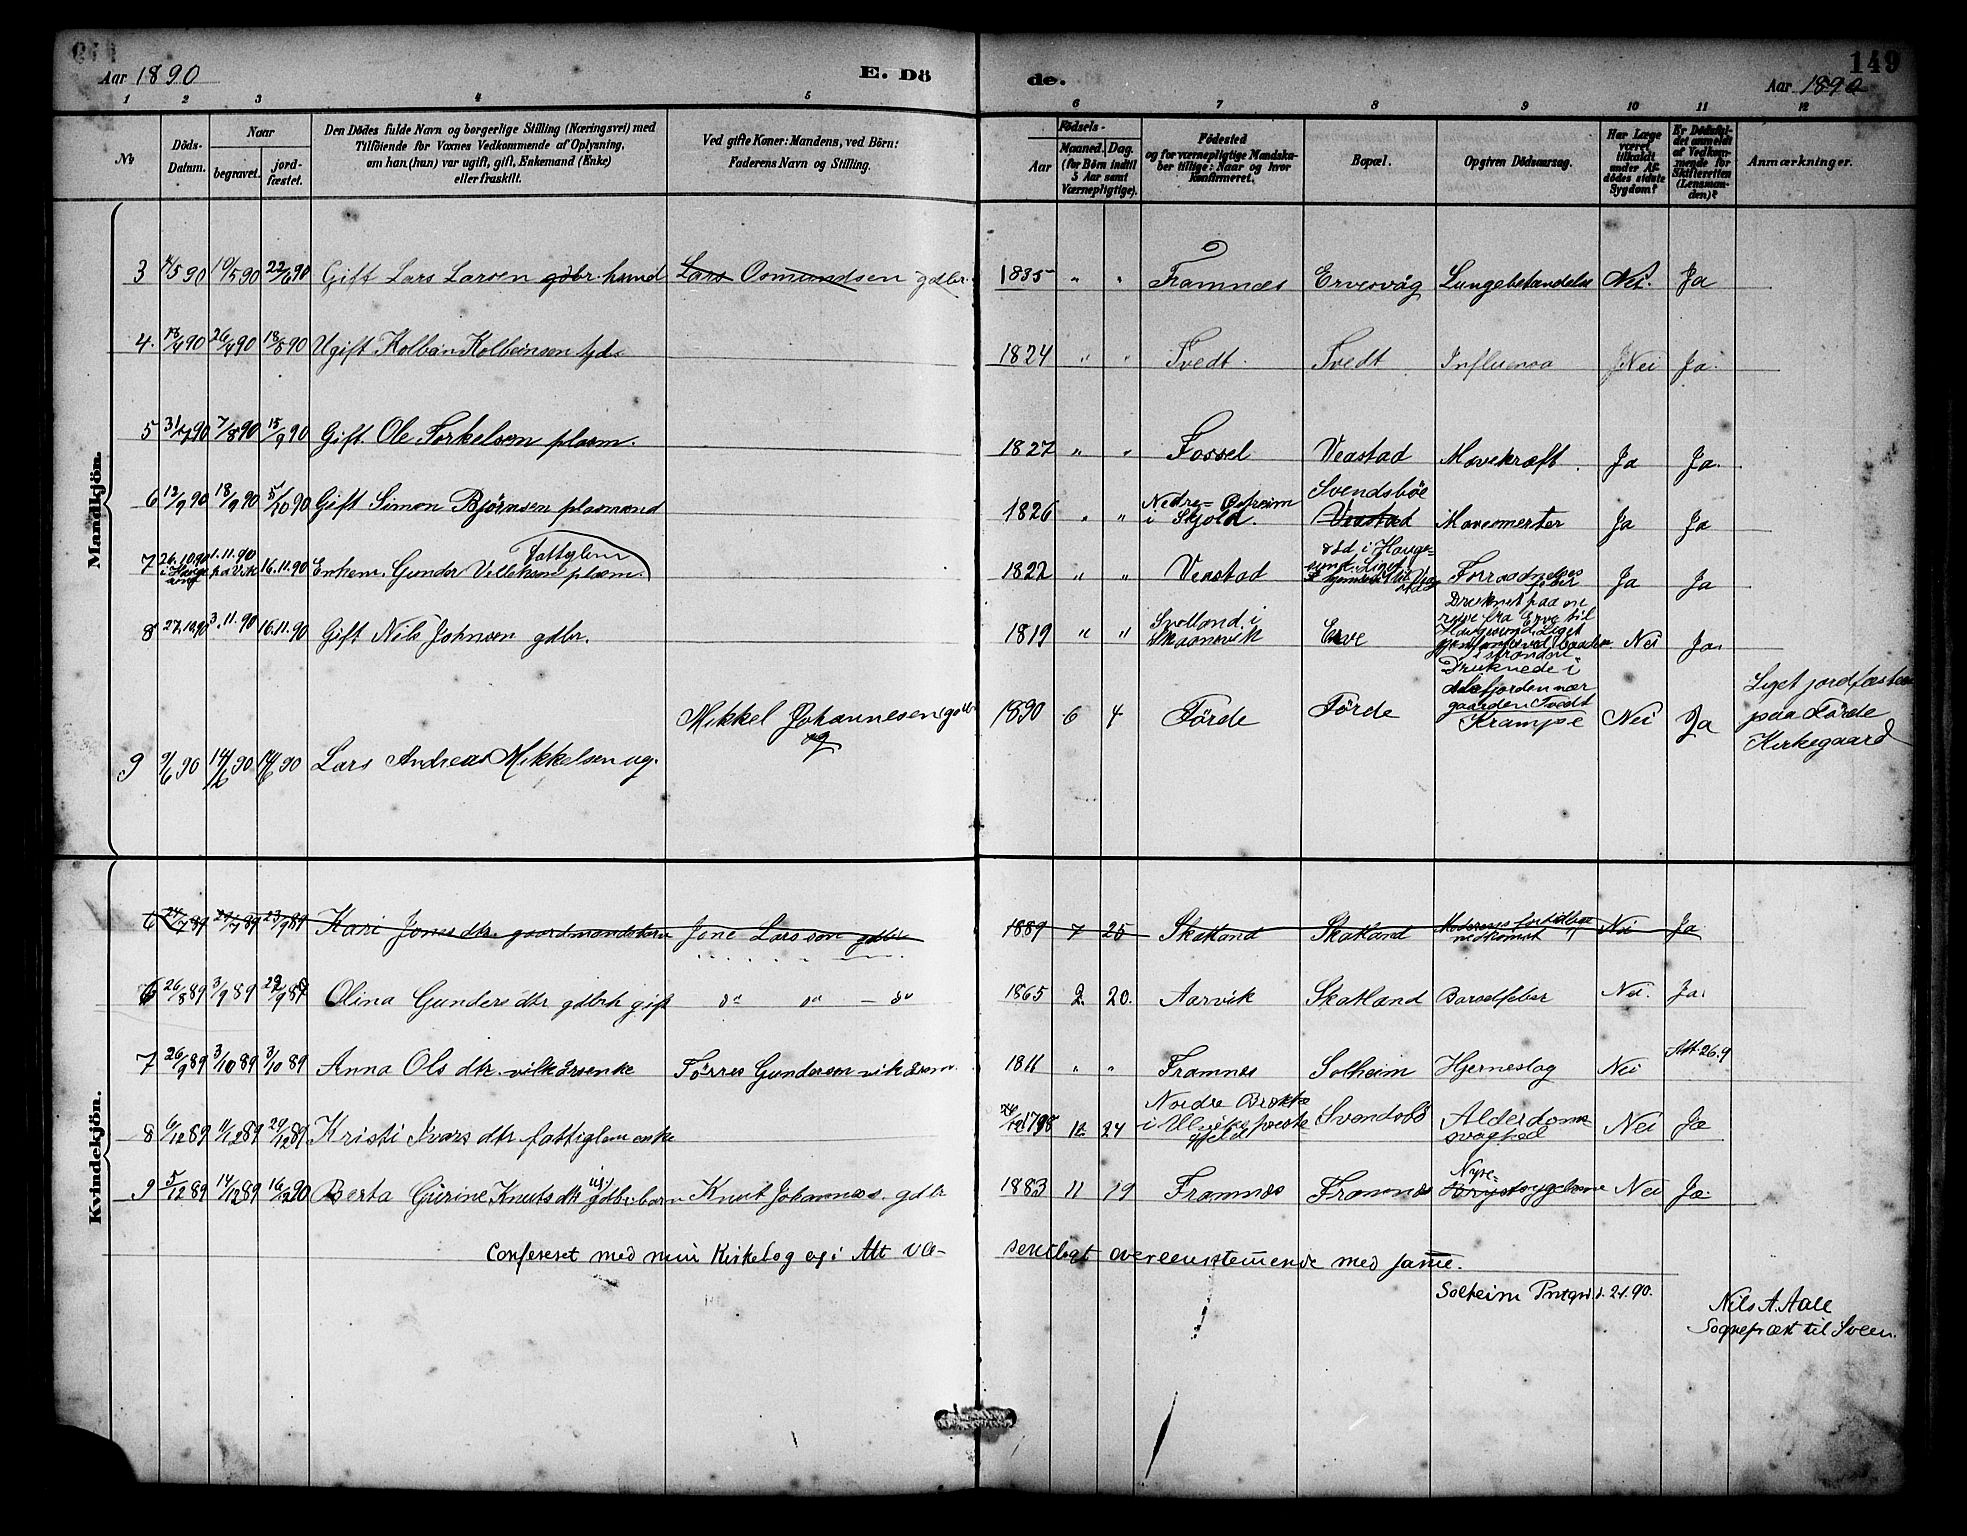 149
Aar 1890
E. Dö
de.
Aar 1890
1 2 3 4 5 6 7 8 9 10 11 12
No
Döds-Datum.
Naar
begravet.
jord-fæstet.
Den Dödes fulde Navn og borgerlige Stilling (Næringsvei) med
Tilföiende for Voxnes Vedkommende af Oplysning,
om han (hun) var ugift, gift, Enkemand (Enke)
eller fraskilt.
Ved gifte Koner: Mandens, ved Börn:
Faderens Navn og Stilling.
Födsels-
Aar
Maaned. Dag.
(for Börn indtil
5 Aar samt
Værnepligtige).
Födested
og for værnepligtige Mandska-
ber tillige: Naar og hvor
konfirmeret.
Bopæl.
Opgiven Dödsaarsag.
Har Læge
været
tilkaldt
under Af-
dödes sidste
Sygdom?
Er Dödsfal-
det anmeldt
af Vedkom-
mende for
Skifteretten
(Lensman-
den)?
Anmærkninger.
Mandkjön.
3 4/5 90 10/5 90 22/6 90 Gift Lars Larsen gdbr. husmd Lars Osmundsen gdbr. 1835 " " Framnæs Ervesvåg Lungebetændelse Nei. Ja
4. 18/4 90 26/4 90 18/5 90 Ugift Kolban Kolbeinsen 1824 " " Tvedt. Tvedt Influensa Nei Ja.
5 31/7 90 7/8 90 15/9 90 Gift Ole Torkelsen plasm. 1827 " " Fossel Veastad Mavekræft. Ja Ja.
6 12/9 90 18/9 90 5/10 90 Gift Simon Björnsen plasmand 1826 " " Nedre=
i Skjold. Svendsböe
Veastad Mavesmerter Ja Ja
7 26.10.90 1.11.90 på Vik 16.11.90 Enkem. Gunder Villeksen plasm. Fattiglem 1822 " " Veastad död i Hauge-
sund. Liget Ja Ja
8 27.10.90 3.11.90 16.11.90 Gift Nils Johnsen gdbr. 1819 " " i
Skaanevik Erve Druknet paa en
reise fra Erve til
Haugesund. Liget Nei Ja.
9 9/6 90 14/6 90 14/6 90 Lars Andreas Mikkelsen ug. Mikkel Johannesen gdbr 1890 6 4 Förde Förde Druknede i
gaarden Tvedt
Krampe Nei Ja Liget jordfæstet
paa Förde
Kirkegaard
Kvindekjön.
6 24/7 89 29/7 89 23/9 89 Kari Jones dtr. gaardmandsbarn Jone Larsson gdbr 1889 7 25 Skatland Skatland Moderens fortidlige
nedkomst Nei Ja
6 26/8 89 3/9 89 22/9 89 Olina Gunders dtr gdbrk gift do do — do 1865 2 20. Aarvik Skatland Barselfeber Nei. Ja.
7 26/9 89 3/10 89 3/10 89 Anna Ols dtr. vilkårsenke Törres Gunderson vikårsm. 1811 " " Framnes Solheim Hjerneslag Nei Att. 26.9
8 6/12 89 11/12 89 29/12 89 Kristi Ivars dtr fattiglem enke 24/12 1798 12 24 Nordre
i Ulviks præste
gjeld Svendsbö Alderdoms
svaghed Nei Ja
9 5/12 89 14/12 89 16/2 90 Berta Gurine Knuts dtr ug gdbr. barn Knut Johannes. gdbr 1883 11 19 Framnæs Framnæs Nyre-
Brystsygdom Nei Ja.
Confereret med min Kirkebog og i Alt væ-
sentligt overeensstemmende med samme.
Solheim Prstgrd d. 2/1. 90.
Nils A. Aall
Sognepræst til Sveen.